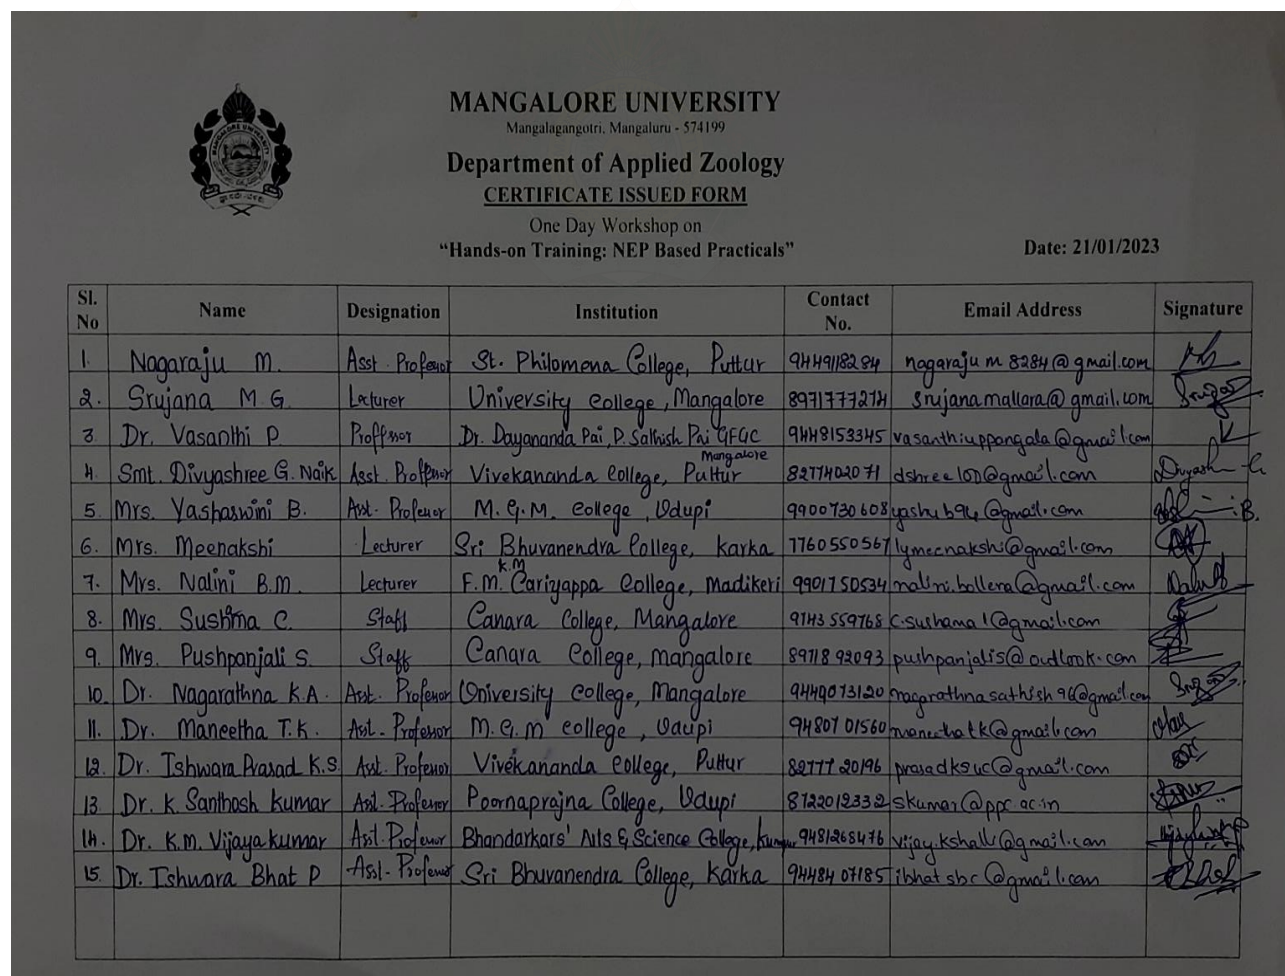 MANGALORE UNIVERSITY
Mangalagangotri, Mangaluru - 574199
Department of Applied Zoology
CERTIFICATE ISSUED FORM
One Day Workshop on
“Hands-on Training: NEP Based Practicals”
Date: 21/01/2023
Sl. No Name Designation Institution Contact No. Email Address Signature
1. Nagaraju M. Asst. Professor St. Philomena College, Puttur 9449118284 nagaraju m 8284@gmail.com
2. Srujana M G. Lecturer University College, Mangalore 8971777274 srujanamallara@gmail.com
3. Dr. Vasanthi P. Proffssor Dr. Dayananda Pai, P. Sathish Pai GFGC Mangalore 9448153345 vasanthiuppangala@gmail.com
4. Smt. Divyashree G. Naik Asst. Proffssor Vivekananda College, Puttur 8277402071 dshree100@gmail.com
5. Mrs. Yashaswini B. Asst. Professor M.G.M. College, Udupi 9900730608 yashub94@gmail.com
6. Mrs. Meenakshi Lecturer Sri Bhuvanendra College, Karka 7760550567 lymeenakshi@gmail.com
7. Mrs. Nalini B.M. Lecturer F.M. K.M Cariyappa College, Madikeri 9901750534 nalini.bollera@gmail.com
8. Mrs. Sushma C. Staff Canara College, Mangalore 9743559768 c.sushama1@gmail.com
9. Mrs. Pushpanjali S. Staff Canara College, Mangalore 8971892093 pushpanjalis@outlook.com
10. Dr. Nagarathna K.A. Asst. Professor University College, Mangalore 9449073120 nagarathnasathish96@gmail.com
11. Dr. Maneetha T.K. Asst. Professor M.G.M College, Udupi 9480701560 maneethatk@gmail.com
12. Dr. Ishwara Prasad K.S. Asst. Professor Vivekananda College, Puttur 8277720196 prasadksvc@gmail.com
13. Dr. K. Santhosh Kumar Asst. Professor Poornaprajna College, Udupi 8722012332 skumar@ppc.ac.in
14. Dr. K.M. Vijaya kumar Asst. Professor Bhandarkars' Arts & Science College, 9481268476 vijay.kshalu@gmail.com
15. Dr. Ishwara Bhat P Asst. Professor Sri Bhuvanendra College, Karka 9448407185 ibhatsbc@gmail.com